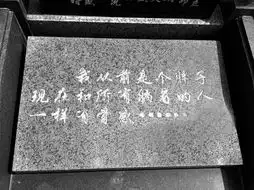 我从前是个胖子
现在和所有躺着的人
一样有骨感······